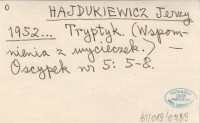 o
HAJDUKIEWICZ Jerzy
1952... Tryptyk. (Wspom-
nienia z wycieczek.) —
Oscypek nr 5: 5-8.